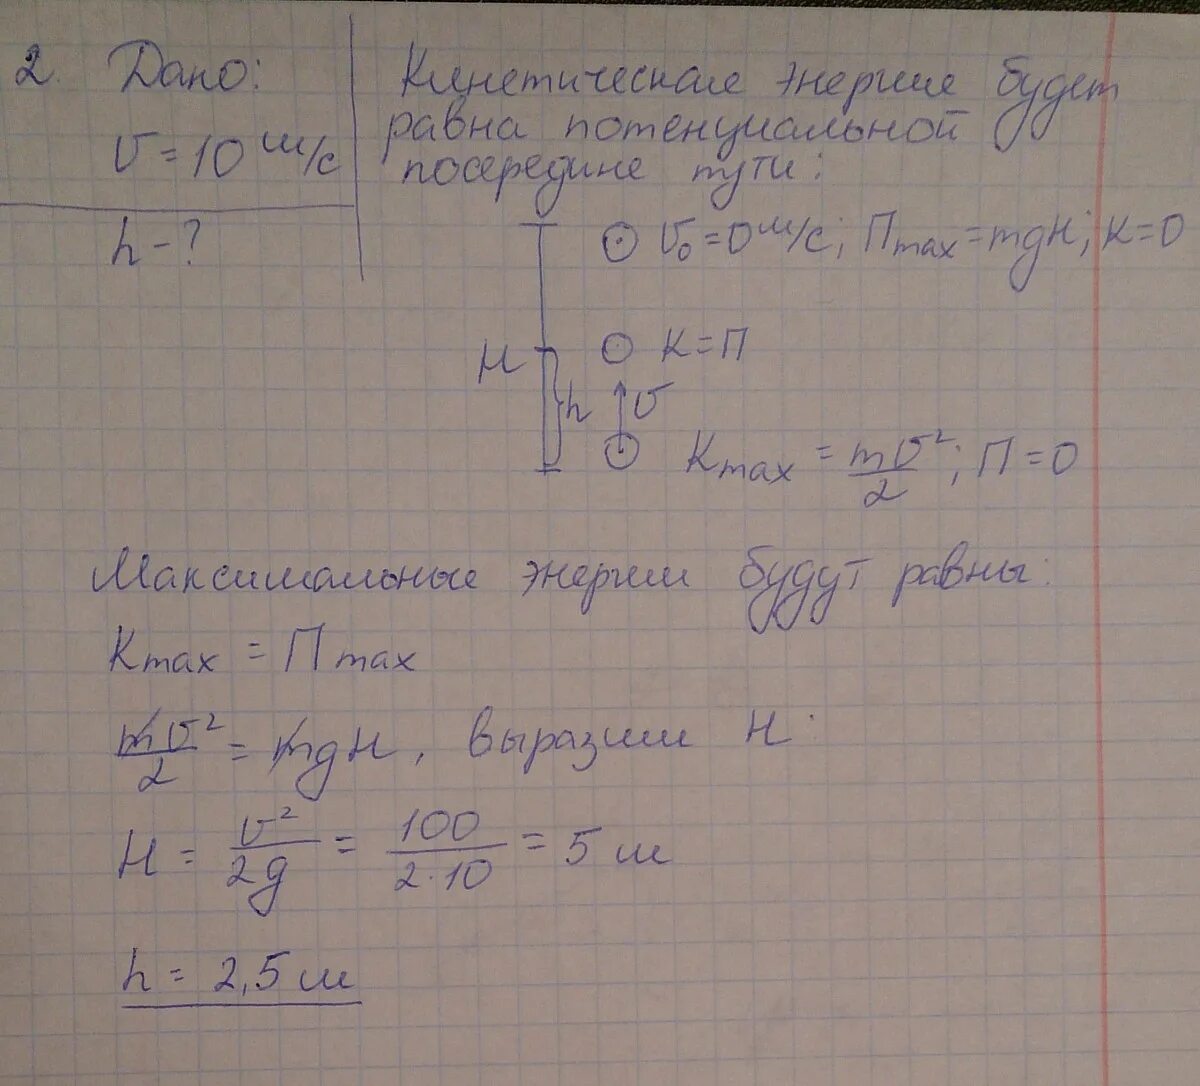 2. Дано:
υ = 10 м/с
h - ?
Кинетическая энергия будет
равна потенциальной
посередине пути:
υ₀ = 0 м/с; Пmax = mgH; К = 0
H
К = П
h
υ
Кmax = mυ²/2; П = 0
Максимальные энергии будут равны:
Кmax = Пmax
mυ²/2 = mgH, выразим H:
H = υ²/2g = 100/2·10 = 5 м
h = 2,5 м